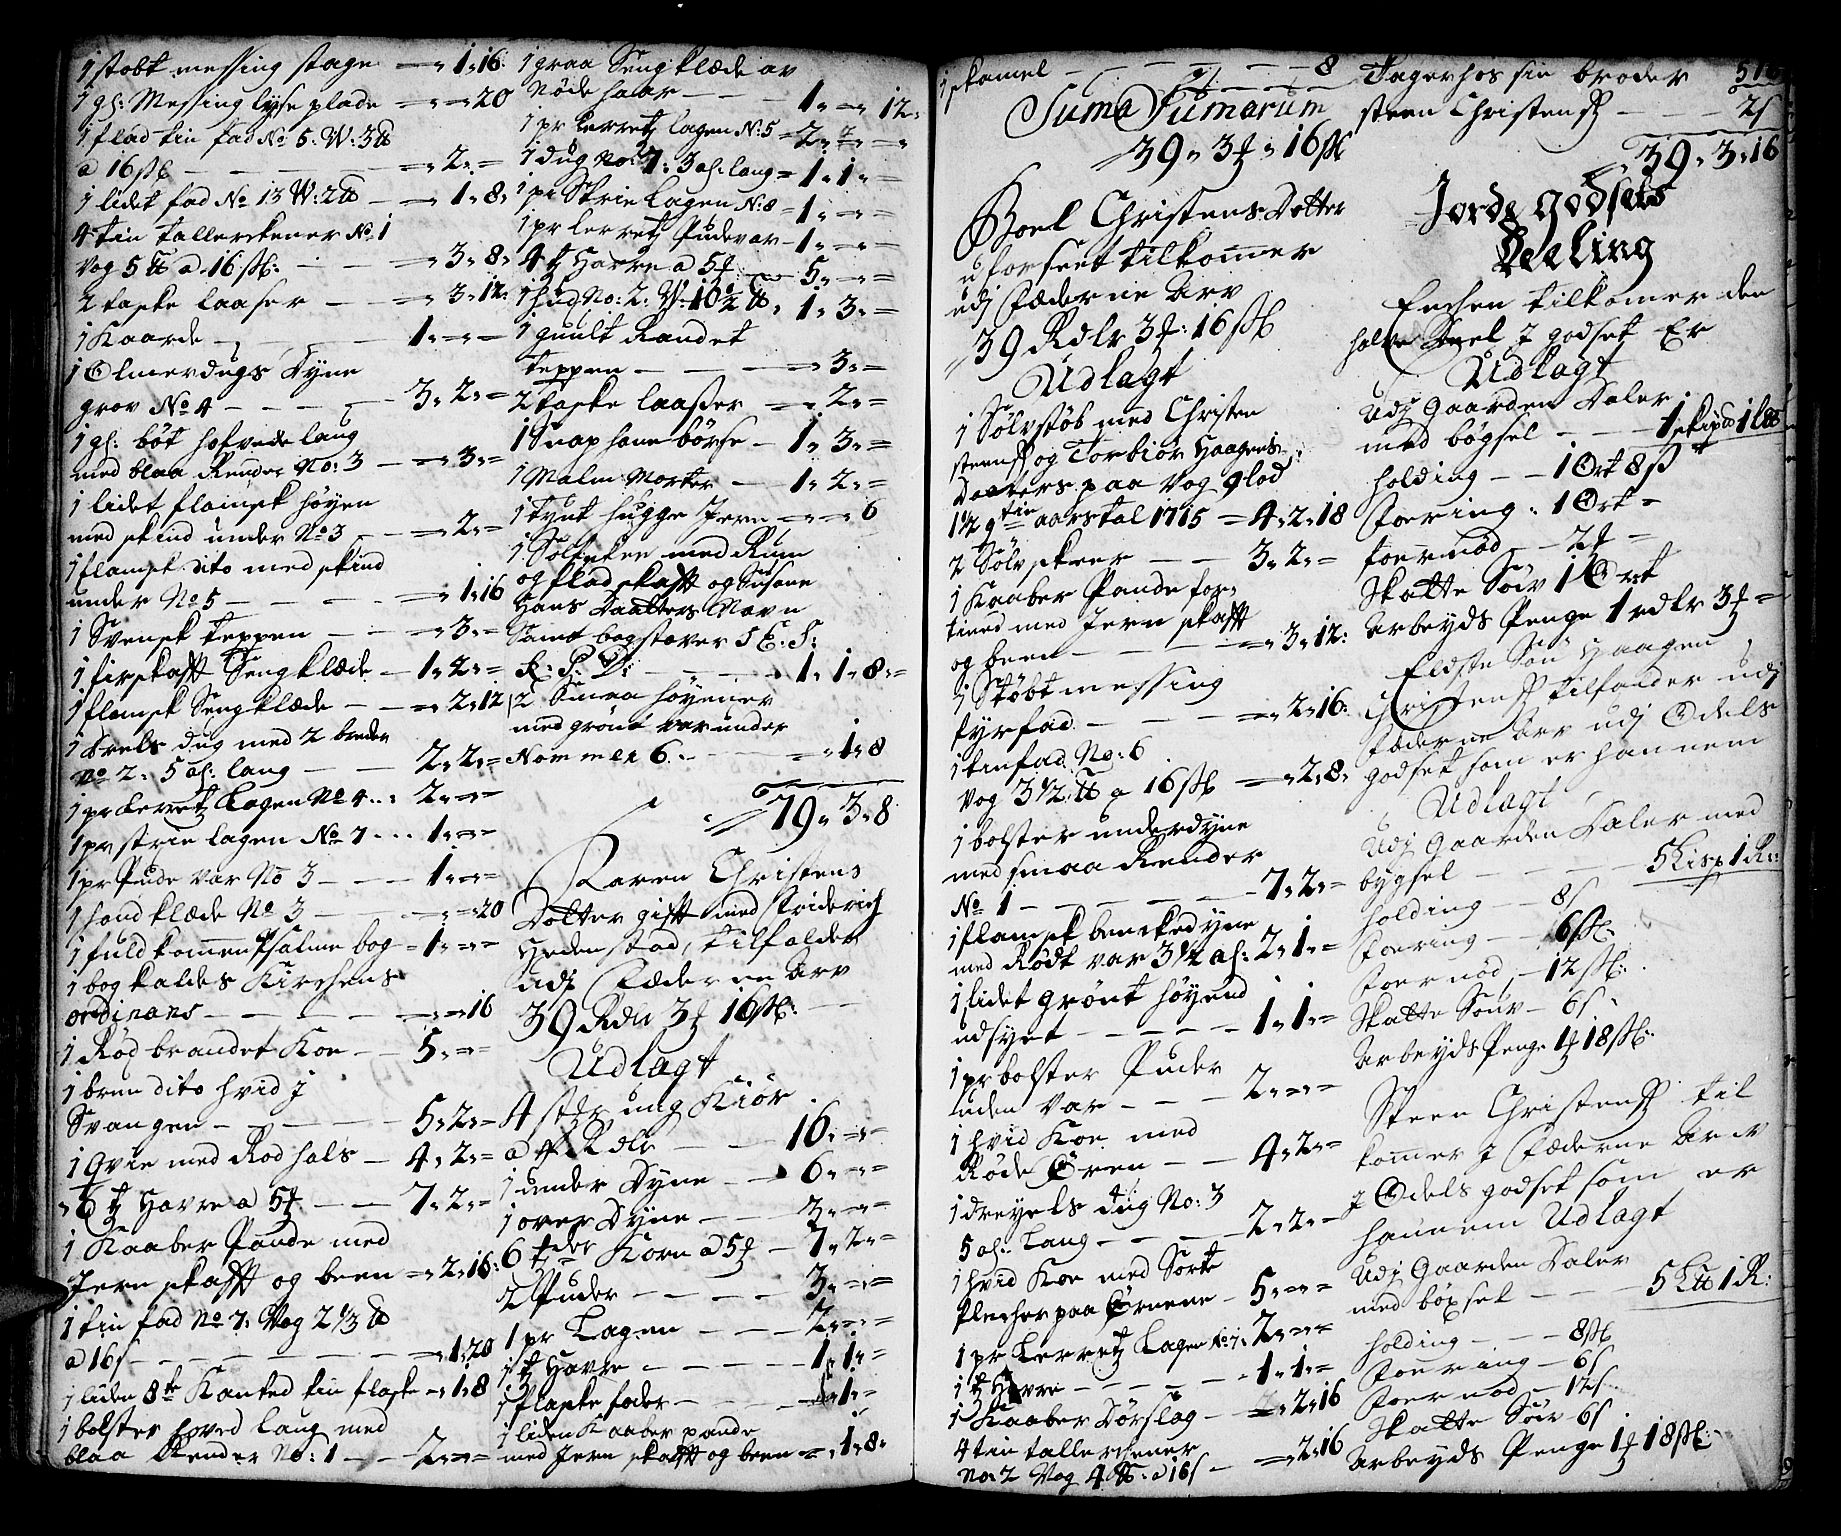 1 stobt messing stage — „ 1 „ 16
1 gl: Messing lyse plade — „ — „ 20
1 flad tin fad No 5: W: 3 ℔
a 16 sk — — „ 2 „ =
1 lidet fad No 13 W: 2 ℔ — „ 1 „ 8
4 tin tallerckener No 1
vog 5 ℔ a 16 sk: — „ 3 „ 8
2 taske laaser — „ 3 „ 12
1 Kaarde — — 1 „ = „ =
1 Olmerdugs Dyne
grov No 4 — — 3 „ 2 „ =
1 gl: bôt hofvede lang
med blaa Render No: 3 — „ 3 „ =
1 lidet flamsk høyen
med skind under No 3 — „ 2 „ =
1 flamsk dito med skind
under No 5 — — „ 1 „ 16
1 Svensk teppen — — „ 3 „ =
1 firskafft Sengklæde — 1 „ 2 „ =
1 flamsk Sengklæde — „ 2 „ 12
1 Drels dug med 2 breder
No 2: 5 al: lang — — 2 „ 2 „ =
1 pr Lerretz Lagen No 4 : 2 „ = „ =
1 pr strie lagen No 7 — 1 „ = „ =
1 pr Pude var No 3 — 1 „ = „ =
1 handklæde No 3 — „ = „ 20
1 fuldkommen Psalme bog — 1 „ = „ =
1 bog kaldes Kirckens
ordinans — — „ = „ 16
1 Rød brandet Koe — 5 „ = „ =
1 brun dito hvid j
Svangen — — 5 „ 2 „ =
1 Qvie med Rød hals — 4 „ 2 „ =
6 t Havre a 5 — — 7 „ 2 „ =
1 Kaaber Pande med
Jern skafft og been — „ 2 „ 16
1 tin fad No 7: Vog 2 1/3 ℔
a 16 s — — „ 1 „ 20
1 liden 8te Kanted tin flaske — „ 1 „ 8
1 bolster hoved lang med
blaa Render No: 1 — — 2 „ = „ =
1 graa Sengklæde av
Nøde haar — — 1 „ — „ 12
1 pr Lerretz lagen No: 5 — 2 „ = „ =
1 dug No: 7: 3 al: lang — 1 „ 1 „ =
1 pr Strie Lagen No: 8 — 1 „ = „ =
1 pr Lerretz Pudevar — 1 „ = „ =
4 t Havre a 5 — 5 „ = „ =
1 hud No: 2: W: 10 1/2 ℔ „ 1 „ 3 „ =
1 guult Randet
teppen — — „ 3 „ =
2 taske laasser — „ 2 „ =
1 Snaphane børse — 1 „ 3 „ =
1 Malm Morter — 1 „ 2 „ =
1 tynt hugge Jern — „ = „ 6
1 Sølfskee med Rum
og flad skafft og Susane
Hans Daatters Navn
Samt bogstaver S E: S:
— 1 „ 1 „ 8
2 Smaa høyener
med grønt var under
Nommer 6 — — „ 1 „ 8
79 „ 3 „ 8
Karen Christens
Dotter gift med Friderich
Hedenstad, tilfalder
udj Fæderne Arv
39 Rdlr 3 16 sk: —
Udlagt
4 stkr ung Kiør
a 4 Rdlr — — 16 „ = „ =
1 under Dyne — 6 „ = „ =
1 over Dyne — 3 „ = „ =
6 tder Korn a 5 — 7 „ 2 „ =
2 Puder — — 3 „ = „ =
1 pr Lagen — — 2 „ = „ =
1 t Havre — — 1 „ 1 „ =
1 flaske foder — — „ 1 „ =
1 liden Kaaber pande
med Jern skafft og been — „ 1 „ 8
1 skamel — — „ — 8
Suma Sumarum
39 „ 3 „ 16 sk
Boel Christens Dotter
uforseet tilkommer
udj Fæderne Arv
39 Rdlr 3: 16 sk
Udlagt
1 Sølvstøb med Christen
Steens og Torbiør Haagens
Daatters paa Vog 9 lod
1 1/2 qtin aarstal 1715 — 4 „ 2 „ 18
2 Sølv skeer — — 3 „ 2 „ =
1 Kaaber Pande for-
tined med Jern skafft
og been — — „ 3 „ 12
1 Støbt messing
fyrfad — — „ 2 „ 16
1 tinfad No: 6
Vog 3 1/2 ℔ a 16 sk — „ 2 „ 8
1 bolster underdyne
med smaa Render
No 1 — — 7 „ 2 „ =
1 flamsk benckedyne
med Rødt var 3 1/2 al: 2 „ 1 „ =
1 lidet grønt høyend
udsyet — — 1 „ 1 „ =
1 pr bolster Puder
uden Var — — 2 „ = „ =
1 hvid Koe med
Røde Øren — — 4 „ 2 „ =
1 dreyels dug No: 3
5 al: Lang — — 2 „ 2 „ =
1 hvid Koe med Sorte
Plecher paa Ørnene — 5 „ = „ =
1 pr Lerretz Lagen No: 7: 2 „ = „ =
1 t Havre — — 1 „ 1 „ =
1 Kaaber Dørslag — „ 2 „ 16
4 tin tallerckener
No: 2 Vog 4 ℔: a 16 s — „ 2 „ 16
Tager hos sin broder
Steen Christens — — 2 s
39 „ 3 „ 16
Jorde godsets
Deeling
Enchen tilkomer den
halve Deel j godset Er
Udlagt
Udj Gaarden Daler
med bøgsel — 1 skip℔ 1 l℔
holding — — 1 Ort 8 s
Foering : 1 Ort =
foernød — 2 =
Skatte Sølv 1 Ort
Arbeyds Penge 1 rdlr 3 =
Eldste Søn Haagen
Christens tilfalder udj
Fæderne Arv udj Odels
godset som er hannem
Udlagt
Udj Gaarden Daler med
bygsel — — 5 Lisp 1 R:
holding — — 8 s
Foering — 6 sk:
Foernød — 12 sk:
Skatte Sølv — 6 s
Arbeyds Penge 1 18 sk:
Steen Christens til
komer j Fæderne Arv
j Odels godset som er
hannem Udlagt
Udj Gaarden Daler
med bøxsel — — 5 L℔ 1 R:
holding — — 8 sk
Foering — 6 s
Foernød — 12 s
Skatte Sølv 6 s
Arbeyds Penge 1 18 sk: